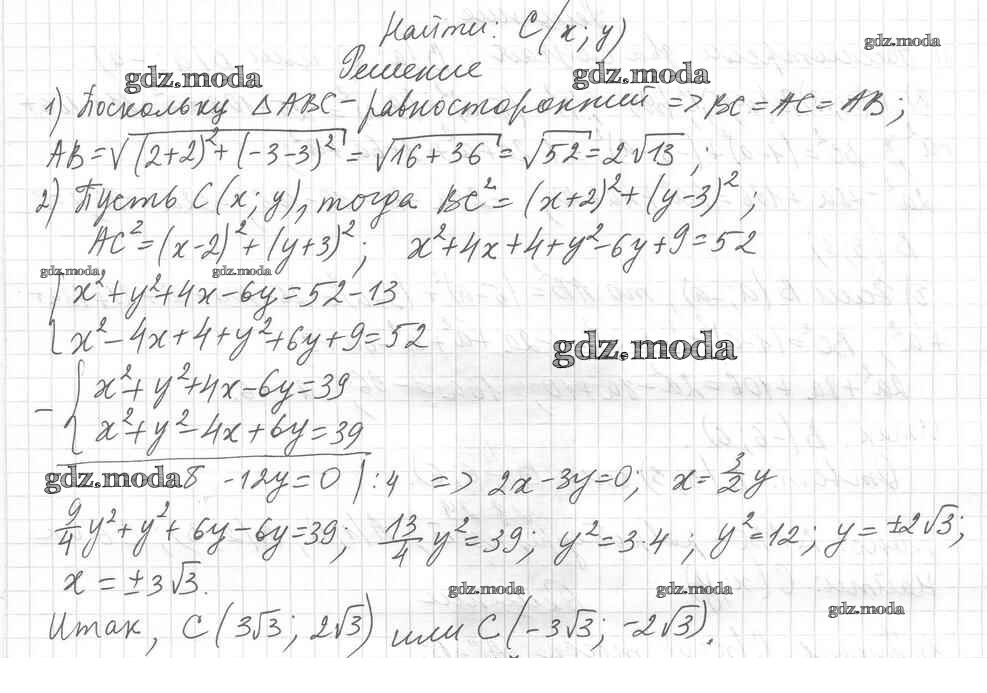 Найти: C(x; y)
gdz.moda
Решение
gdz.moda gdz.moda
1) Поскольку △ABC – равносторонний => BC = AC = AB;
AB = √(2+2)² + (-3-3)² = √16+36 = √52 = 2√13;
2) Пусть C(x; y), тогда BC² = (x+2)² + (y-3)²;
AC² = (x-2)² + (y+3)²; x² + 4x + 4 + y² - 6y + 9 = 52
gdz.moda gdz.moda
{ x² + y² + 4x - 6y = 52 - 13
{ x² - 4x + 4 + y² + 6y + 9 = 52
gdz.moda
- { x² + y² + 4x - 6y = 39
{ x² + y² - 4x + 6y = 39
gdz.moda 8 - 12y = 0 | : 4 => 2x - 3y = 0; x = 3/2 y
9/4 y² + y² + 6y - 6y = 39; 13/4 y² = 39; y² = 3·4; y² = 12; y = ±2√3;
x = ±3√3.
gdz.moda gdz.moda gdz.moda
Итак, C(3√3; 2√3) или C(-3√3; -2√3).